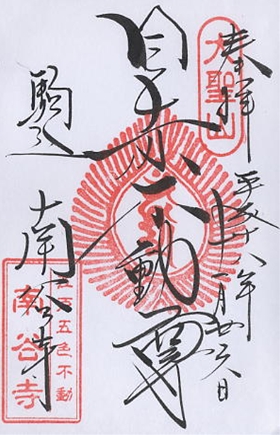 奉拝
平成十八年
廿六日
大聖山
目赤不動尊
駒込
南谷寺
江戸五色不動
南谷寺